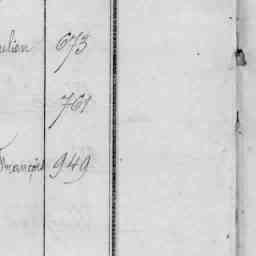 ulien 673
761
François 949